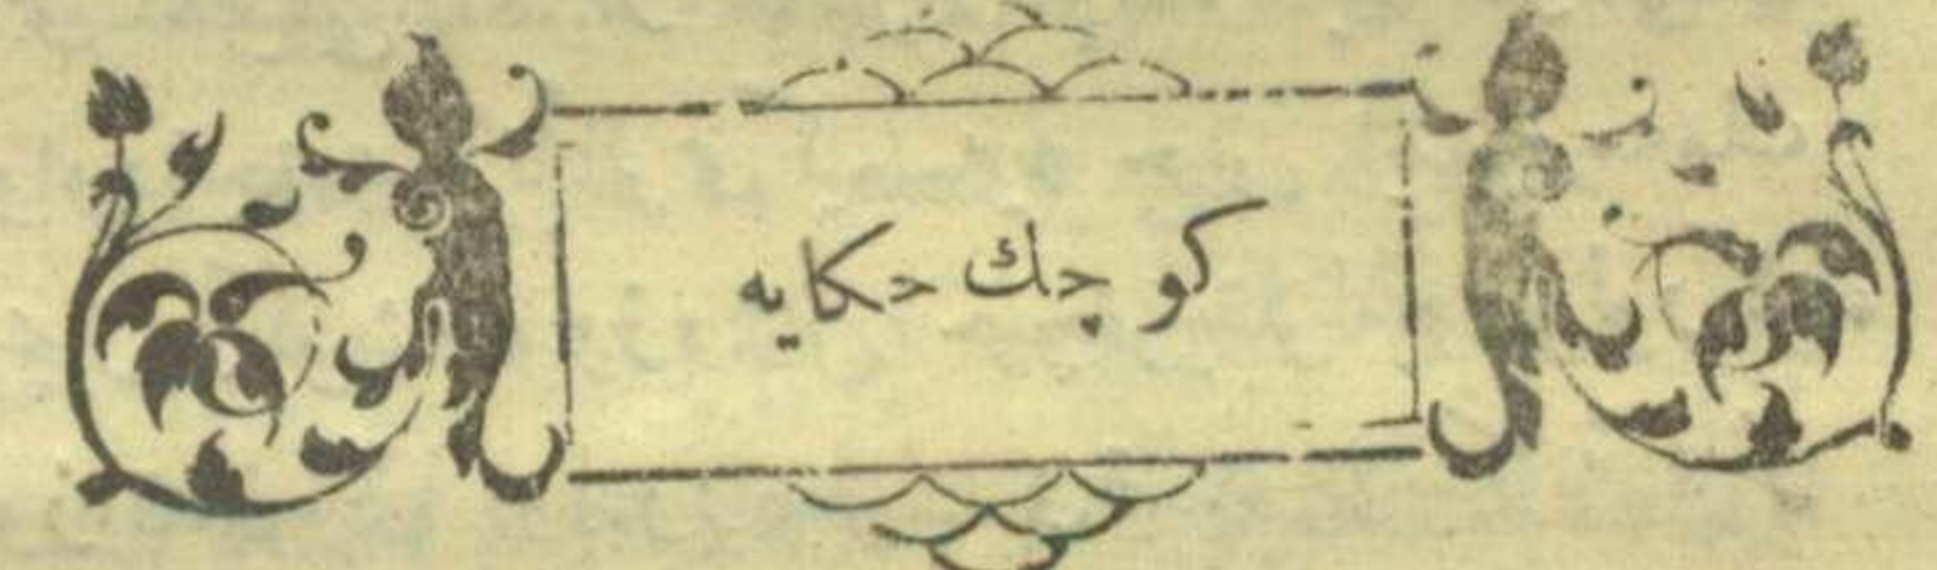 كوچك حكايه